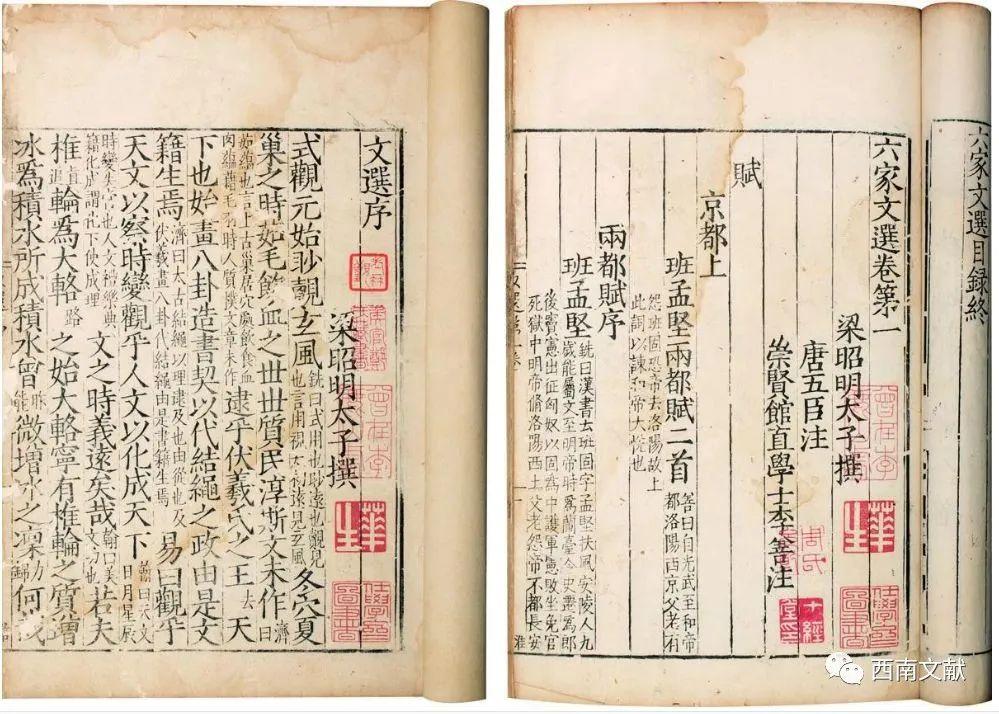 文選序
梁昭明太子撰
式觀元始眇覿玄風銑曰式用也眇遠也覿見也言用視遠見玄風冬穴夏
巢之時茹毛飲血之世世質民淳斯文未作濟曰
茹也言上古巢居穴處飲食血肉時人質撲文章未作逮乎伏羲氏之王去天
下也始畫八卦造書契以代結繩之政由是文
籍生焉濟曰太古結繩以理逮及也由從也及伏羲畫八卦代結繩由是書籍生焉易曰觀乎
天文以察時變觀乎人文以化成天下翰曰天文日月星辰
時變生官也人文禮樂典籍化成謂化下使成理文之時義遠矣哉翰曰美文功也若夫
椎直追輪為大輅路之始大輅寧有椎輪之質增
冰為積水所成積水曾能微增冰之凜力錦何哉
六家文選目録終
六家文選卷第一
梁昭明太子撰
唐五臣注
崇賢館直學士李善注
賦
京都上
班孟堅兩都賦二首善曰自光武至和帝都洛陽西京父老有
怨班固恐帝去洛陽故上此詞以諫和帝大悅也
兩都賦序
班孟堅銑曰漢書云班固字孟堅扶風安陵人九歲能屬文至明帝時為蘭臺令史遷為郎
後竇憲出征匈奴以固為中護軍憲敗坐免官死獄中明帝脩洛陽西土父老怨帝不都長安
周氏
西南文献